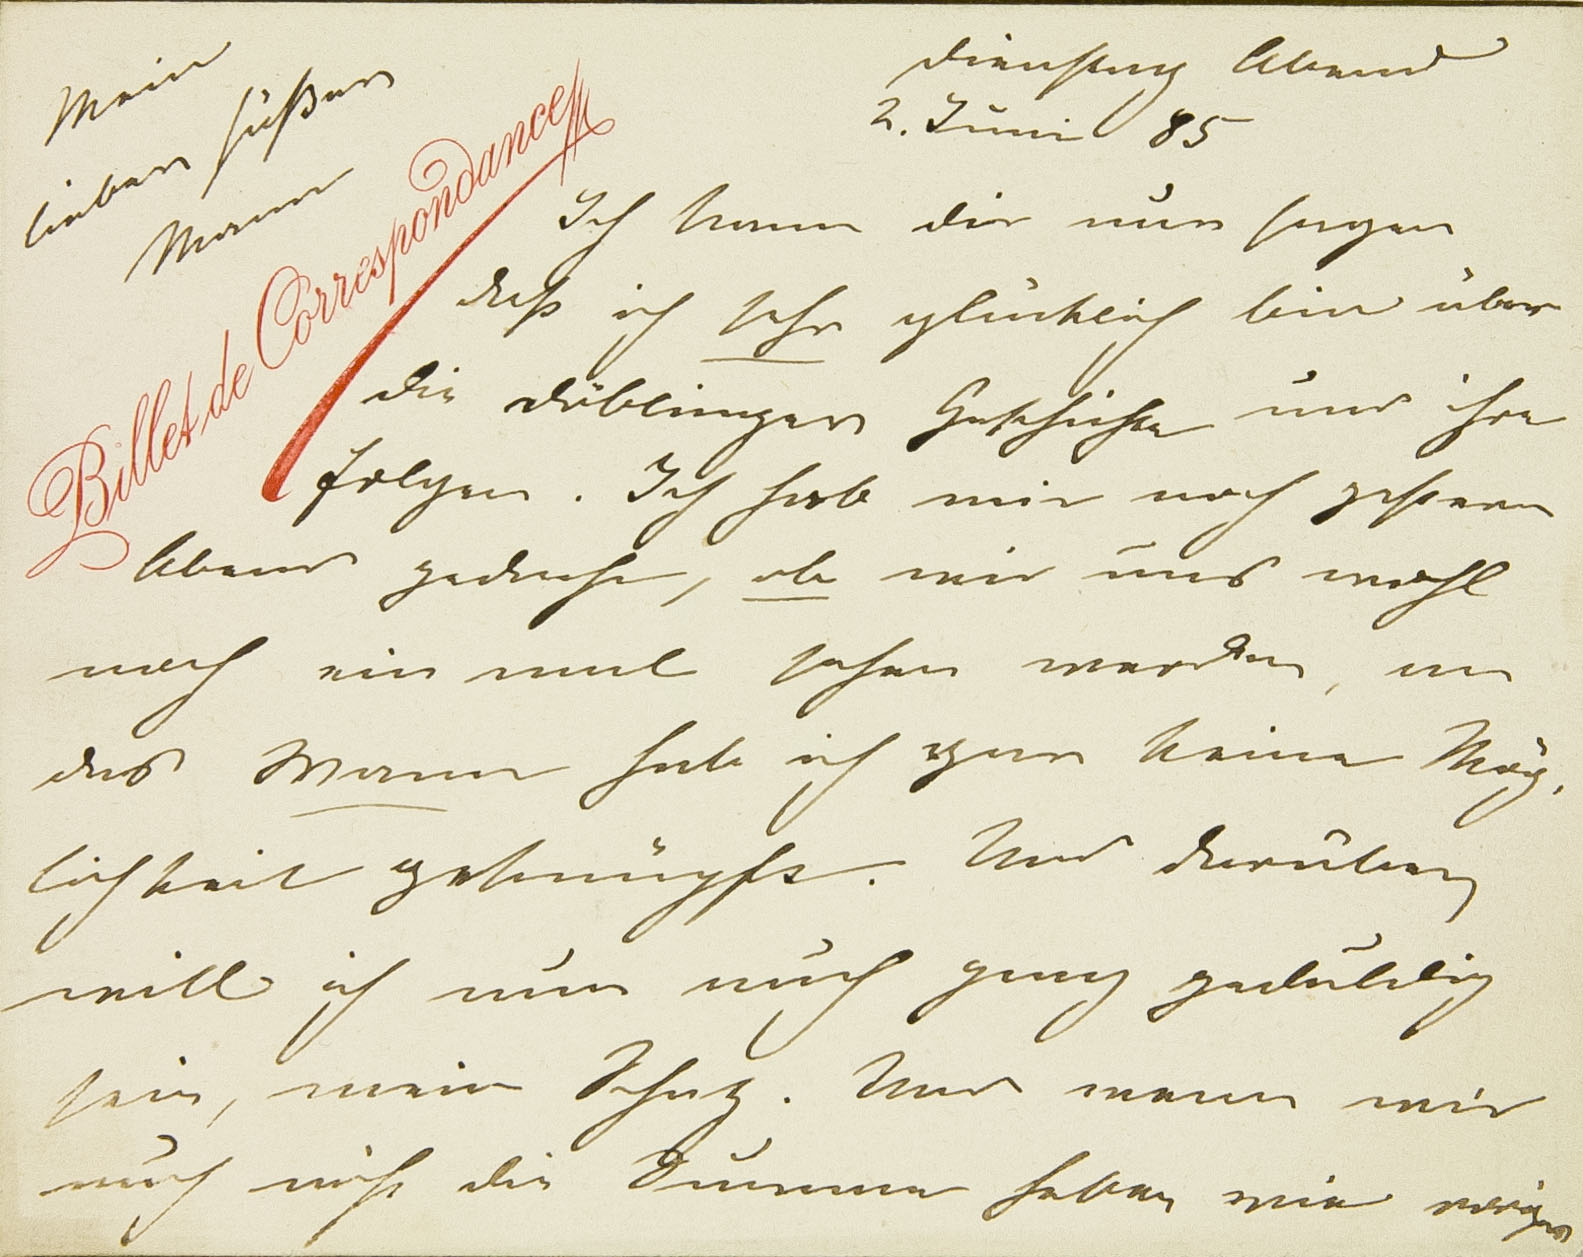 Mein
lieber süßer
Mann
Billet de Correspondance
Dienstag Abend
2. Juni 85
Ich kann dir nur sagen
daß ich sehr glücklich bin über
die Döblinger Geschichte und ihre
Folgen. Ich hab mir noch gestern
Abend gedacht, ob wir uns wohl
noch ein mal sehen werden, an
das Wann hab ich gar keine Mög-
lichkeit geknüpft. Und darüber
will ich nun auch ganz geduldig
sein, mein Schatz. Und wenn wir
auch nicht die Summe haben wie